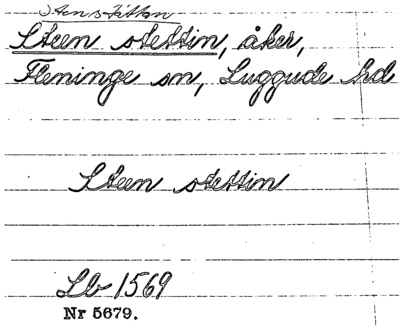 Stenstittan
Steen stettin, åker,
Fleninge sn, Luggude hd
Steen stettin
Lb 1569
Nr 5679.